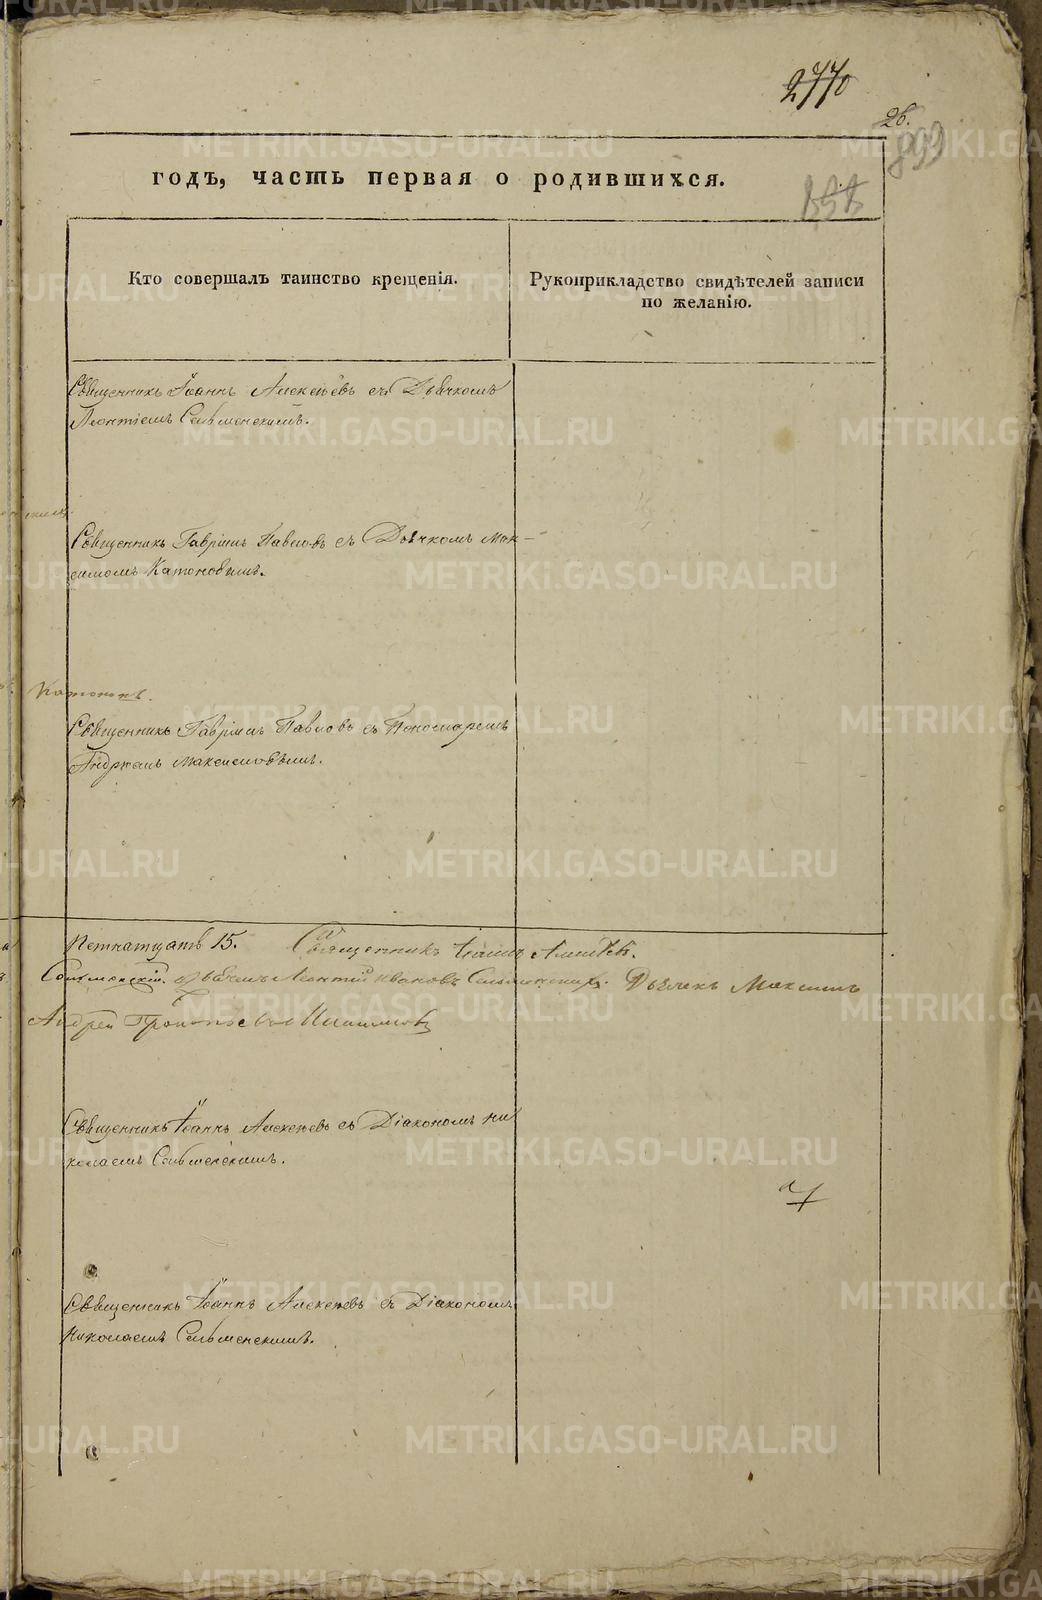 2770
26.
899
годъ, часть первая о родившихся.
Кто совершалъ таинство крещенія.
Рукоприкладство свидѣтелей записи
по желанію.
Священникъ Іоаннъ Алексѣевъ съ Дьячкомъ
Леонтіемъ Сельменскимъ.
Священникъ Гавріилъ Павловъ съ Дьячкомъ Мак-
симомъ Катоновымъ.
Катоновъ.
Священникъ Гавріилъ Павловъ съ Пономаремъ
Андреемъ Максимовымъ.
Петнатцать 15. Священникъ Іоаннъ
Сельменскій. Леонтій Ивановъ Сельменскихъ. Дьячекъ Максимъ
Андрей
Священникъ Іоаннъ Алексѣевъ съ Діакономъ Ни
колаемъ Сельменскимъ.
Священникъ Іоаннъ Алексѣевъ съ Діакономъ
Николаемъ Сельменскимъ.
METRIKI.GASO-URAL.RU